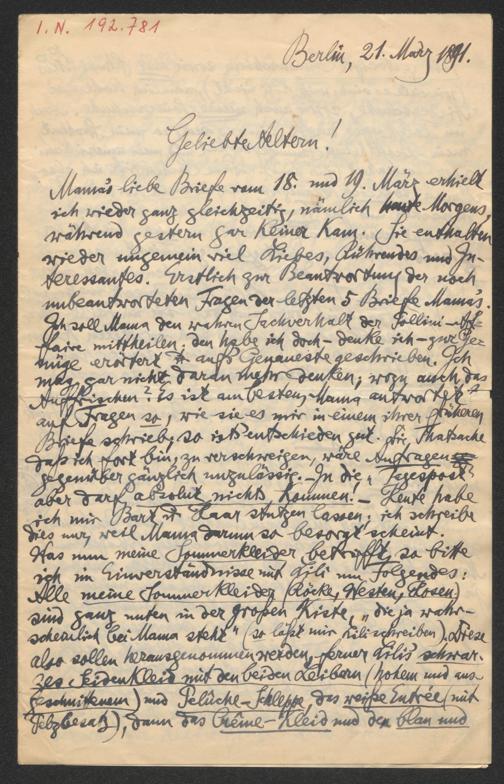 I. N. 192.781
Berlin, 21. März 1891.
Geliebte Aeltern!
Mama's liebe Briefe vom 18. und 19. März erhielt
ich wieder ganz gleichzeitig, nämlich heute Morgens,
während gestern gar keiner kam. Sie enthalten
wieder ungemein viel Liebes, Rührendes und In-
teressantes. Erstlich zur Beantwortung der noch
unbeantworteten Fragen der letzten 5 Briefe Mama's.
Ich soll Mama den wahren Sachverhalt der Pollini-Af-
faire mittheilen, den habe ich doch – denke ich – zur Ge-
nüge erörtert u. aufs Genaueste geschrieben. Ich
mag gar nicht daran mehr denken; wozu auch das
Auffrischen? Es ist am besten, Mama antwortet
auf Fragen so, wie sie es mir in einem ihrer früheren
Briefe schrieb; so ist's entschieden gut. Die Thatsache
daß ich fort bin, zu verschweigen, wäre Anfragen
gegenüber gänzlich unzulässig. – In die „Tagespost"
aber darf absolut nichts kommen. – Heute habe
ich mir Bart u. Haar stutzen lassen; ich schreibe
dies nur, weil Mama darum so besorgt scheint.
Was nun meine Sommerkleider betrifft, so bitte
ich im Einverständnisse mit Lili um Folgendes:
Alle meine Sommerkleider (Röcke, Westen, Hosen)
sind ganz unten in der großen Kiste, „die ja wahr-
scheinlich bei Mama steht" (so läßt mir Lili schreiben). Diese
also sollen herausgenommen werden, ferner Lili's schwar-
zes Seidenkleid mit den beiden Leibern (hohem und aus-
geschnittenem) und Pelüche-Schleppe, das weiße Entrée (mit
Pelzbesatz), dann das Crême-Kleid und den blau und